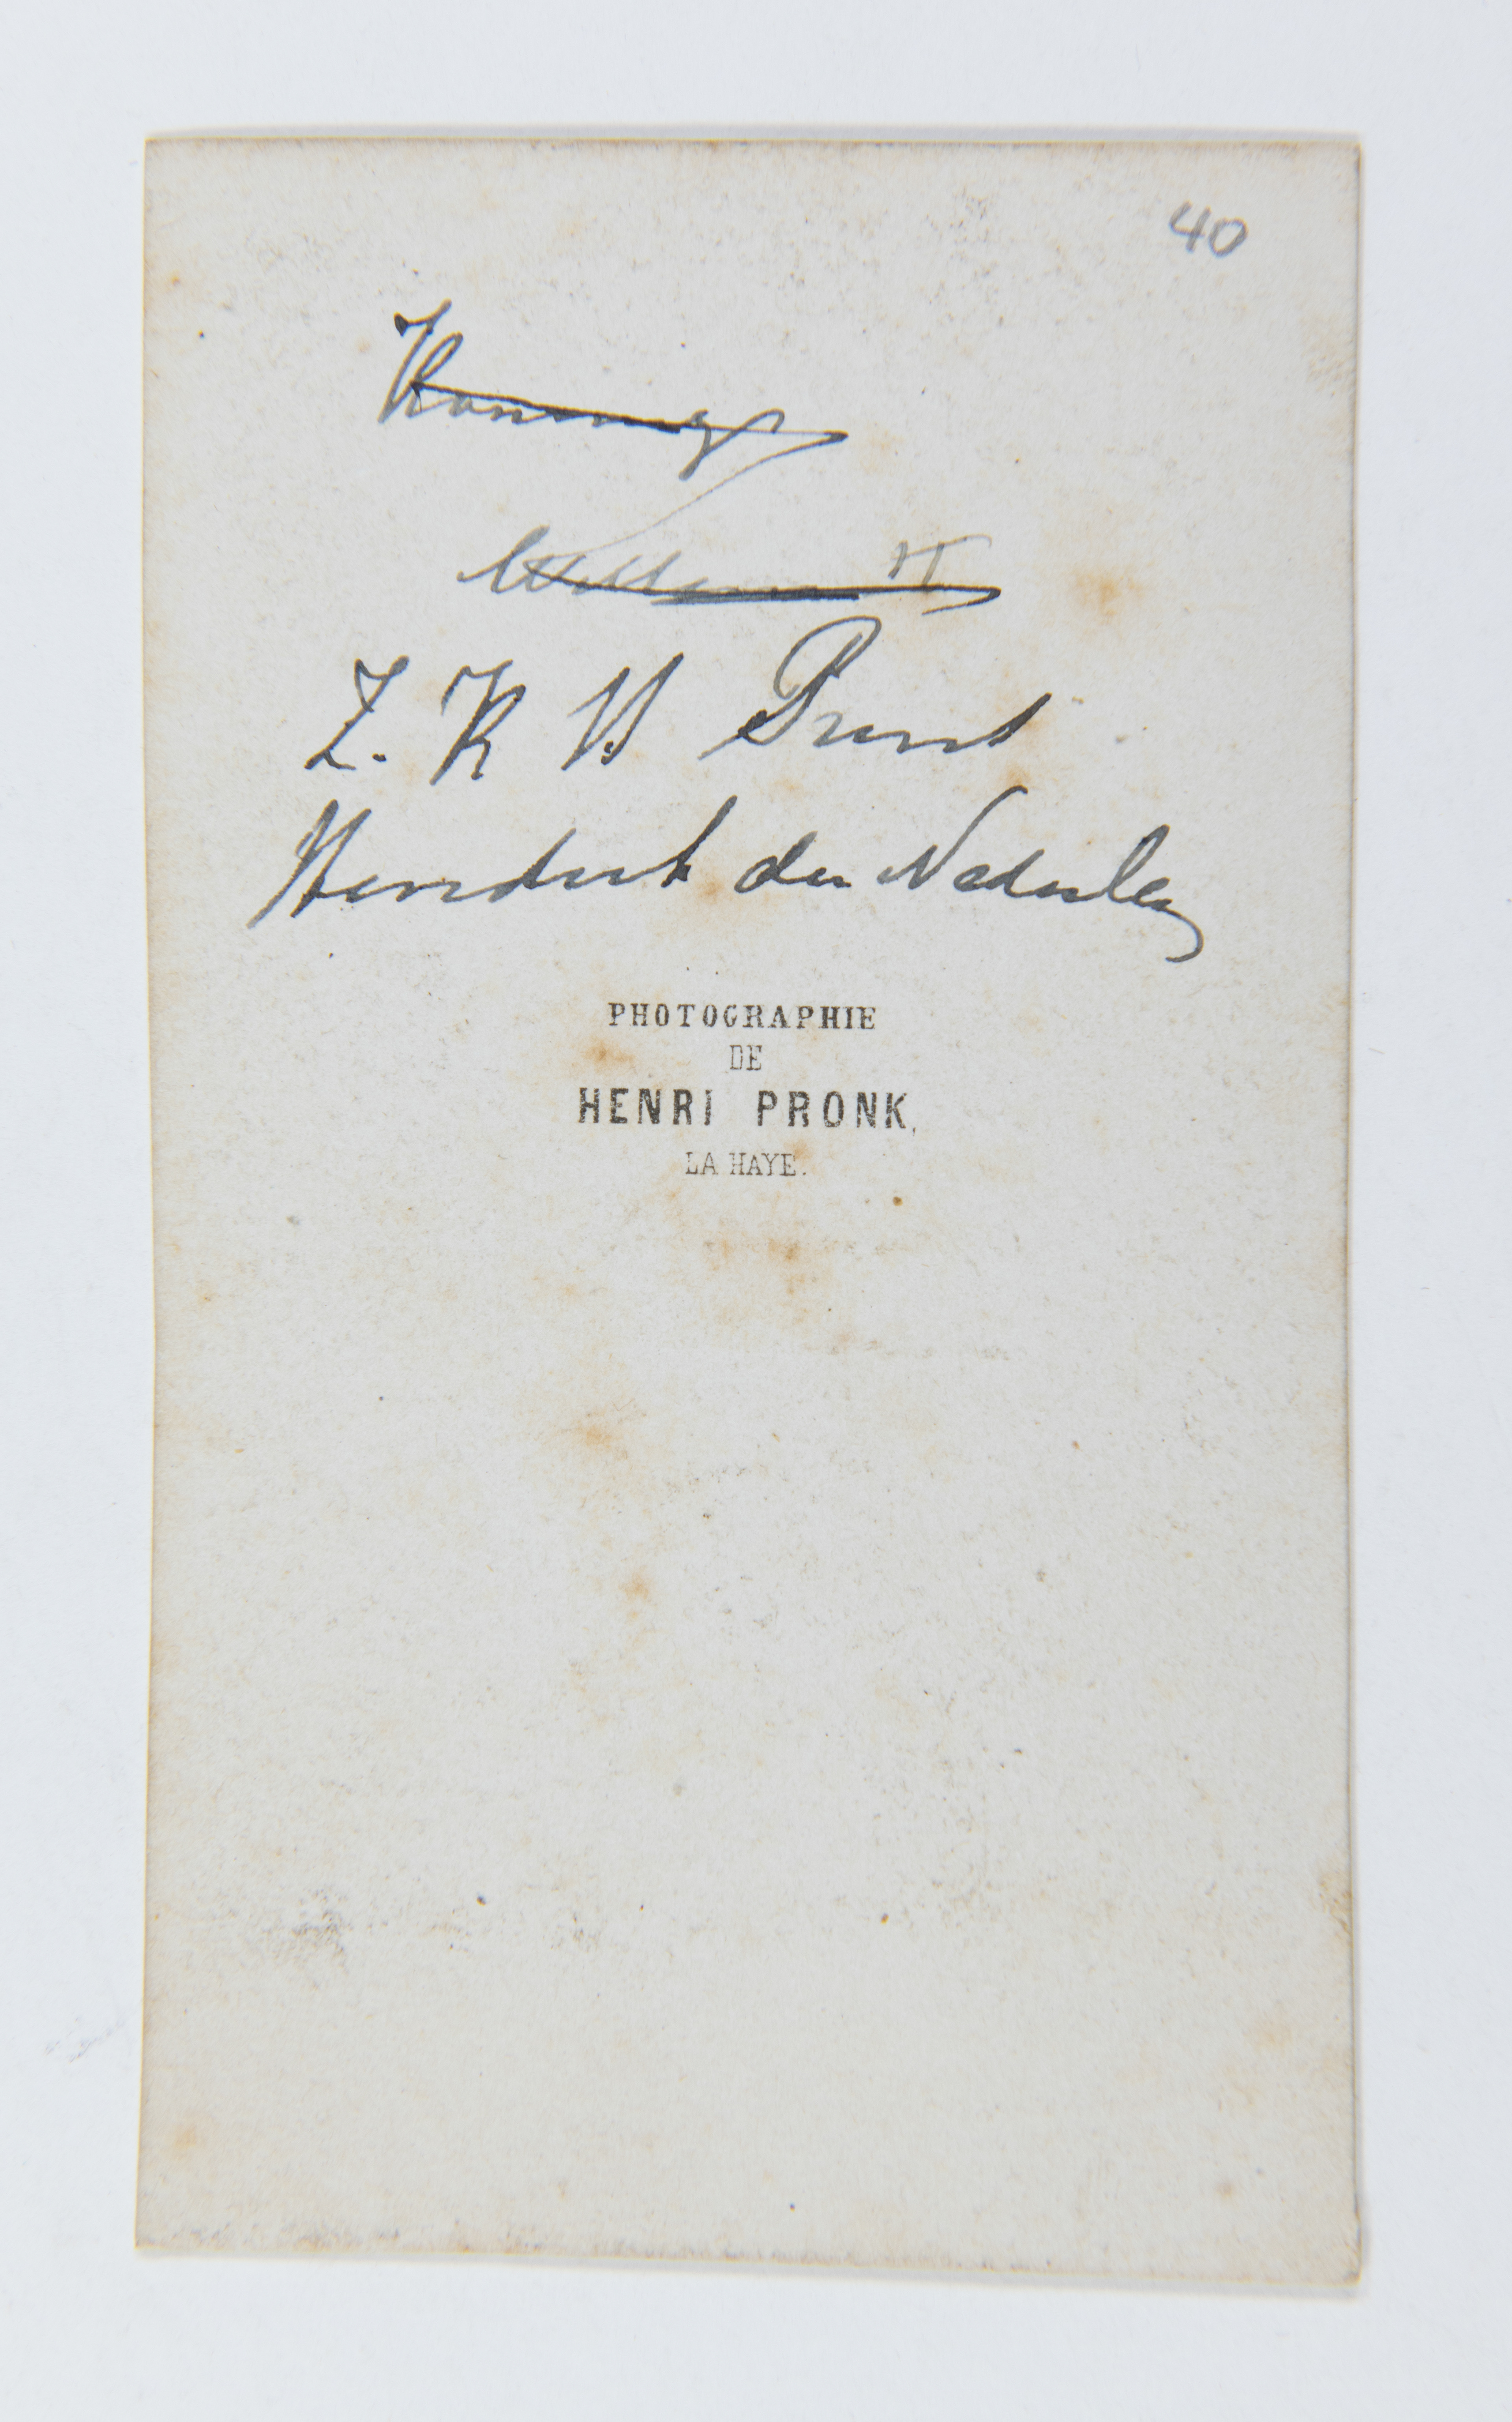 40
Koning
Willem II
Z. K H Prins
Hendrik der Nederlan
PHOTOGRAPHIE
DE
HENRI PRONK.
LA HAYE.